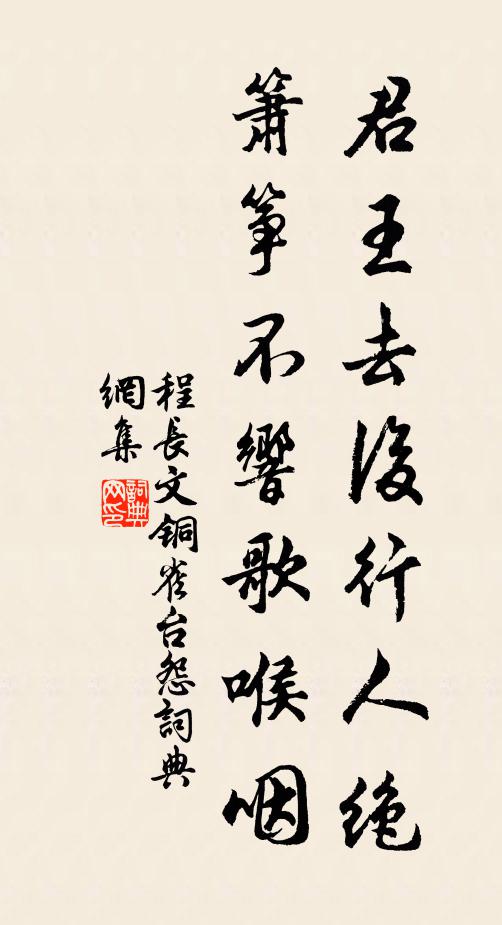 君王去後行人绝
箫筝不響歌喉咽
程長文銅雀台怨詞典
網集
詞典
网印